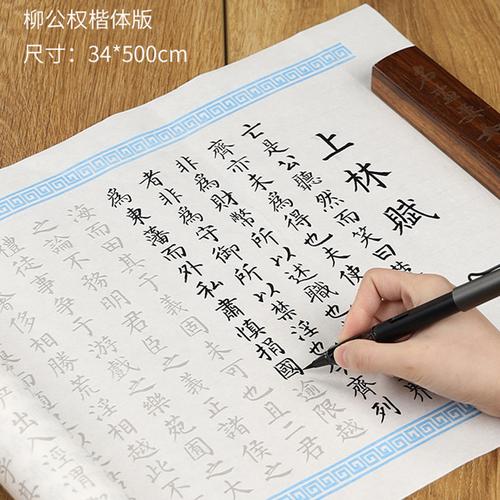 柳公权楷体版
尺寸：34*500cm
上林賦
亡是公聽然而笑曰
齊亦未為得也夫使
非為財幣所以述職也
者非為守御所以禁淫也齊列
為東藩而外私肅慎捐國逾限越
海而田其于義固未可也且二君
之論不務明君臣之義正諸侯之
禮徒事爭于游戲之樂苑囿之
侈相勝荒淫相越此不